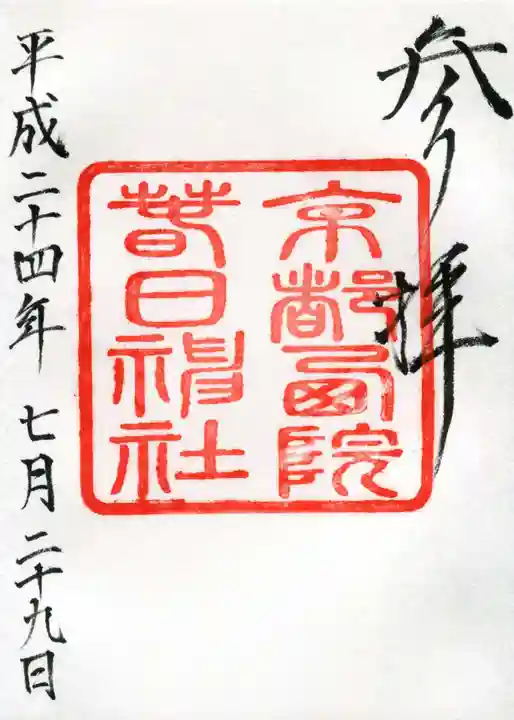 参拝
京都西院
春日神社
平成二十四年 七月 二十九日